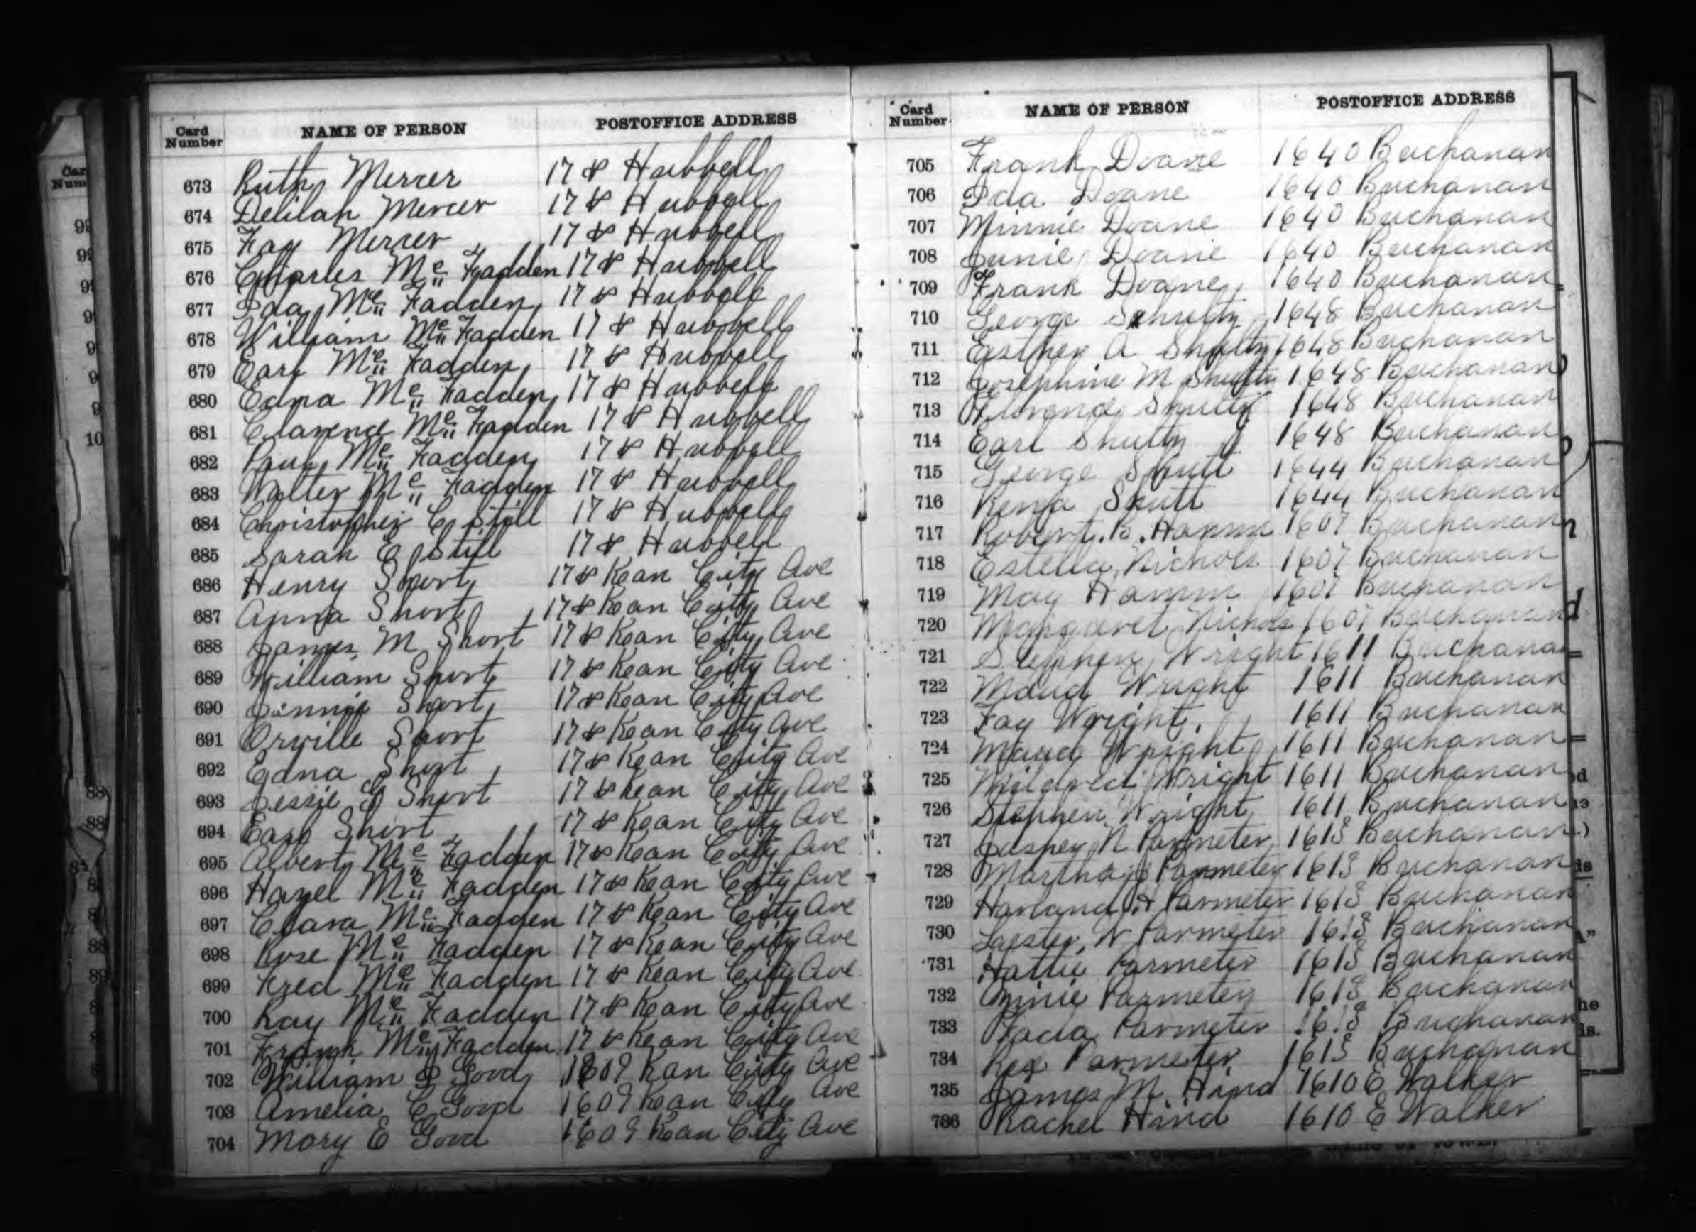 Card Number NAME OF PERSON POSTOFFICE ADDRESS
673 Ruth Mercer 17 & Hubbell
674 Delilah Mercer 17 & Hubbell
675 Fay Mercer 17 & Hubbell
676 Charles Mc Fadden 17 & Hubbell
677 Ida Mc Fadden 17 & Hubbell
678 William Mc Fadden 17 & Hubbell
679 Earl Mc Fadden 17 & Hubbell
680 Edna Mc Fadden 17 & Hubbell
681 Clarence Mc Fadden 17 & Hubbell
682 Paul Mc Fadden 17 & Hubbell
683 Walter Mc Fadden 17 & Hubbell
684 Christopher C Still 17 & Hubbell
685 Sarah E Still 17 & Hubbell
686 Henry Short 17 & Kean City Ave
687 Anna Short 17 & Kean City Ave
688 James M Short 17 & Kean City Ave
689 William Short 17 & Kean City Ave
690 Short 17 & Kean City Ave
691 Orville Short 17 & Kean City Ave
692 Edna Short 17 & Kean City Ave
693 Jessie Short 17 & Kean City Ave
694 Earl Short 17 & Kean City Ave
695 Albert Mc Fadden 17 & Kean City Ave
696 Hazel Mc Fadden 17 & Kean City Ave
697 Clara Mc Fadden 17 & Kean City Ave
698 Rose Mc Fadden 17 & Kean City Ave
699 Fred Mc Fadden 17 & Kean City Ave
700 Ray Mc Fadden 17 & Kean City Ave
701 Frank Mc Fadden 17 & Kean City Ave
702 William Good 1609 Kan City Ave
703 Amelia C Good 1609 Kean City Ave
704 Mary E Good 1609 Kean City Ave
Card Number NAME OF PERSON POSTOFFICE ADDRESS
705 Frank Doane 1640 Buchanan
706 Ida Doane 1640 Buchanan
707 Minnie Doane 1640 Buchanan
708 Junie Doane 1640 Buchanan
709 Frank Doane 1640 Buchanan
710 George Schultz 1648 Buchanan
711 Esther A Shultz 1648 Buchanan
712 Josephine M Shultz 1648 Buchanan
713 Florence Shultz 1648 Buchanan
714 Earl Shultz 1648 Buchanan
715 George Shutt 1644 Buchanan
716 Rena Shutt 1644 Buchanan
717 Robert B. Hamm 1607 Buchanan
718 Estella Nichols 1607 Buchanan
719 May Hamm 1607 Buchanan
720 Margaret Nichols 1607 Buchanan
721 Stephen Wright 1611 Buchanan
722 Maud Wright 1611 Buchanan
723 Fay Wright 1611 Buchanan
724 Maud Wright 1611 Buchanan
725 Mildred Wright 1611 Buchanan
726 Stephen Wright 1611 Buchanan
727 N Parmeter 1613 Buchanan
728 Martha J Parmeter 1613 Buchanan
729 Harland H Parmeter 1613 Buchanan
730 Lester W Parmeter 1613 Buchanan
731 Hattie Parmeter 1613 Buchanan
732 Parmeter 1613 Buchanan
733 Parmeter 1613 Buchanan
734 Rex Parmeter 1613 Buchanan
735 James M. Hind 1610 E Walker
736 Rachel Hind 1610 E Walker